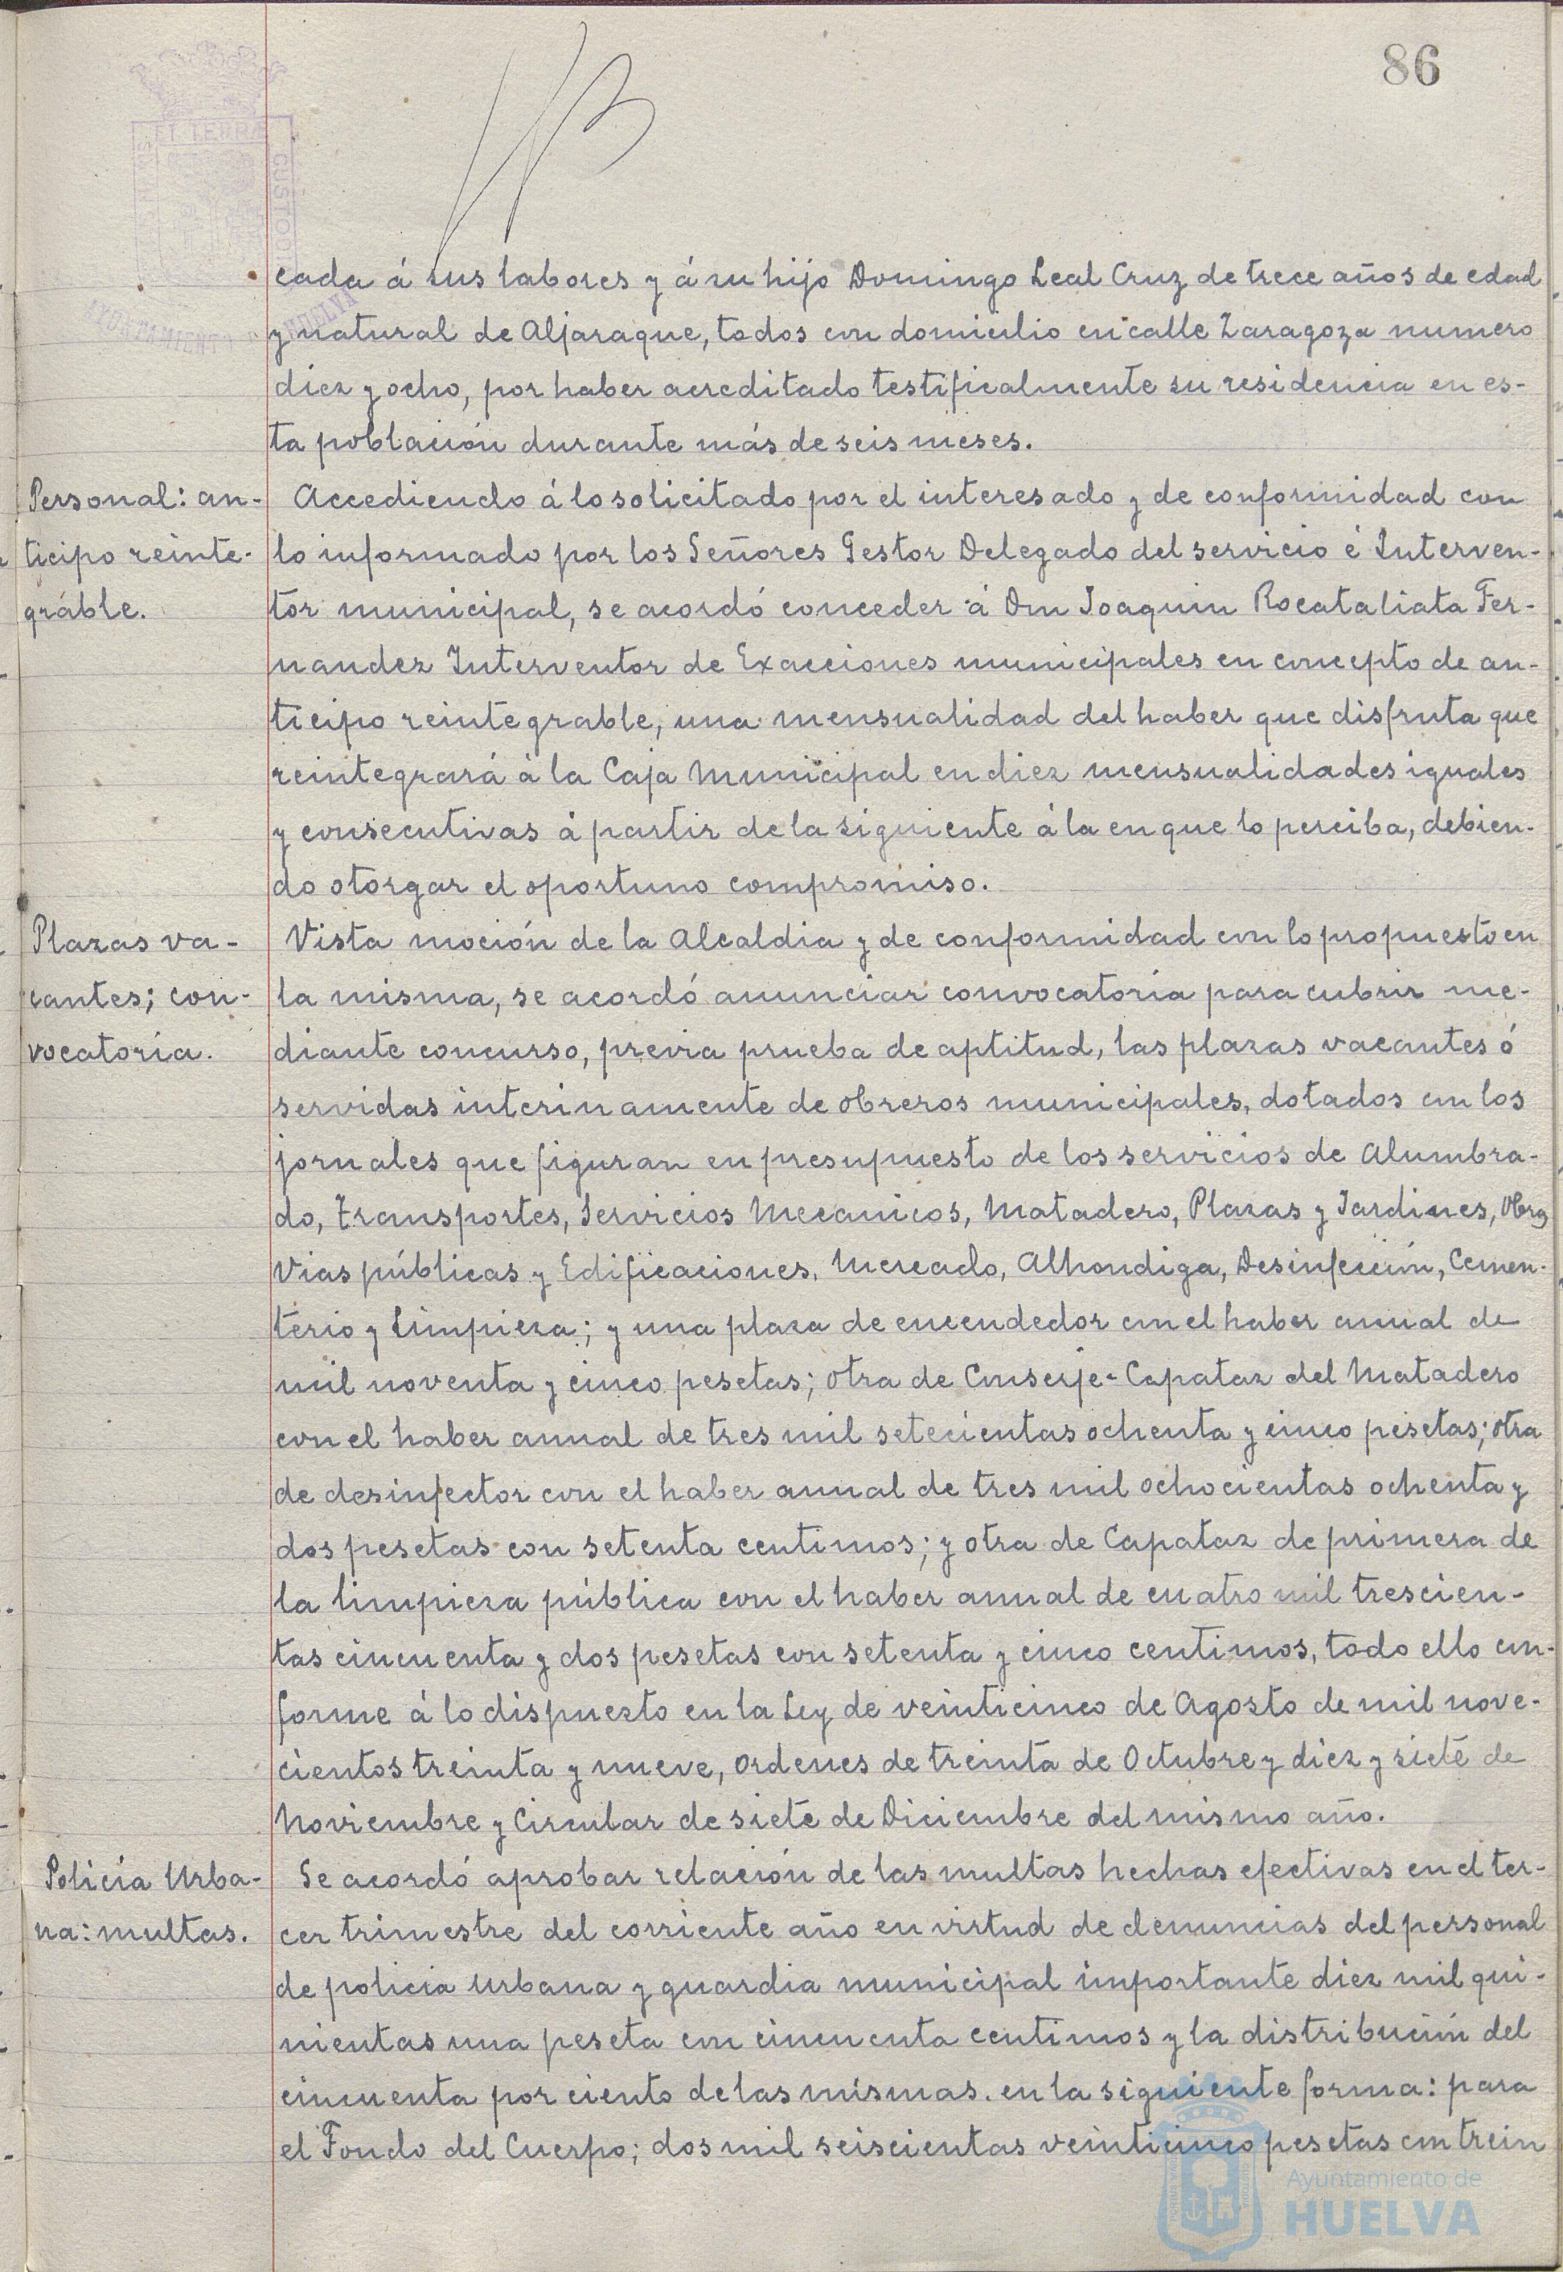 86
cada á sus labores y á su hijo Domingo Leal Cruz de trece años de edad
y natural de Aljaraque, todos con domicilio en calle Zaragoza numero
diez y ocho, por haber acreditado testificalmente su residencia en es-
ta población durante más de seis meses.
Personal: an-
ticipo reinte-
grable.
Accediendo á lo solicitado por el interesado y de conformidad con
lo informado por los Señores Gestor Delegado del servicio é Interven-
tor municipal, se acordó conceder á Don Joaquin Rocataliata Fer-
nandez Interventor de Exacciones municipales en concepto de an-
ticipo reintegrable, una mensualidad del haber que disfruta que
reintegrará á la Caja Municipal en diez mensualidades iguales
y consecutivas á partir de la siguiente á la en que lo perciba, debien-
do otorgar el oportuno compromiso.
Plazas va-
cantes; con-
vocatoria.
Vista moción de la Alcaldia y de conformidad con lo propuesto en
la misma, se acordó anunciar convocatoria para cubrir me-
diante concurso, previa prueba de aptitud, las plazas vacantes ó
servidas interinamente de obreros municipales, dotados con los
jornales que figuran en presupuesto de los servicios de Alumbra-
do, Transportes, Servicios Mecanicos, Matadero, Plazas y Jardines, Obras
Vias públicas y Edificaciones, Mercado, Alhondiga, Desinfección, Cemen-
terio y Limpieza; y una plaza de encendedor con el haber anual de
mil noventa y cinco pesetas; otra de Conserje-Capataz del Matadero
con el haber anual de tres mil setecientas ochenta y cinco pesetas; otra
de desinfector con el haber anual de tres mil ochocientas ochenta y
dos pesetas con setenta centimos; y otra de Capataz de primera de
la limpieza pública con el haber anual de cuatro mil trescien-
tas cincuenta y dos pesetas con setenta y cinco centimos, todo ello con-
forme á lo dispuesto en la Ley de veinticinco de Agosto de mil nove-
cientos treinta y nueve, ordenes de treinta de Octubre y diez y siete de
Noviembre y Circular de siete de Diciembre del mismo año.
Policía Urba-
na: multas.
Se acordó aprobar relación de las multas hechas efectivas en el ter-
cer trimestre del corriente año en virtud de denuncias del personal
de policia urbana y guardia municipal importante diez mil qui-
nientas una peseta con cincuenta centimos y la distribución del
cincuenta por ciento de las mismas. en la siguiente forma: para
el Fondo del Cuerpo; dos mil seiscientas veinticinco pesetas con trein
Ayuntamiento de
HUELVA